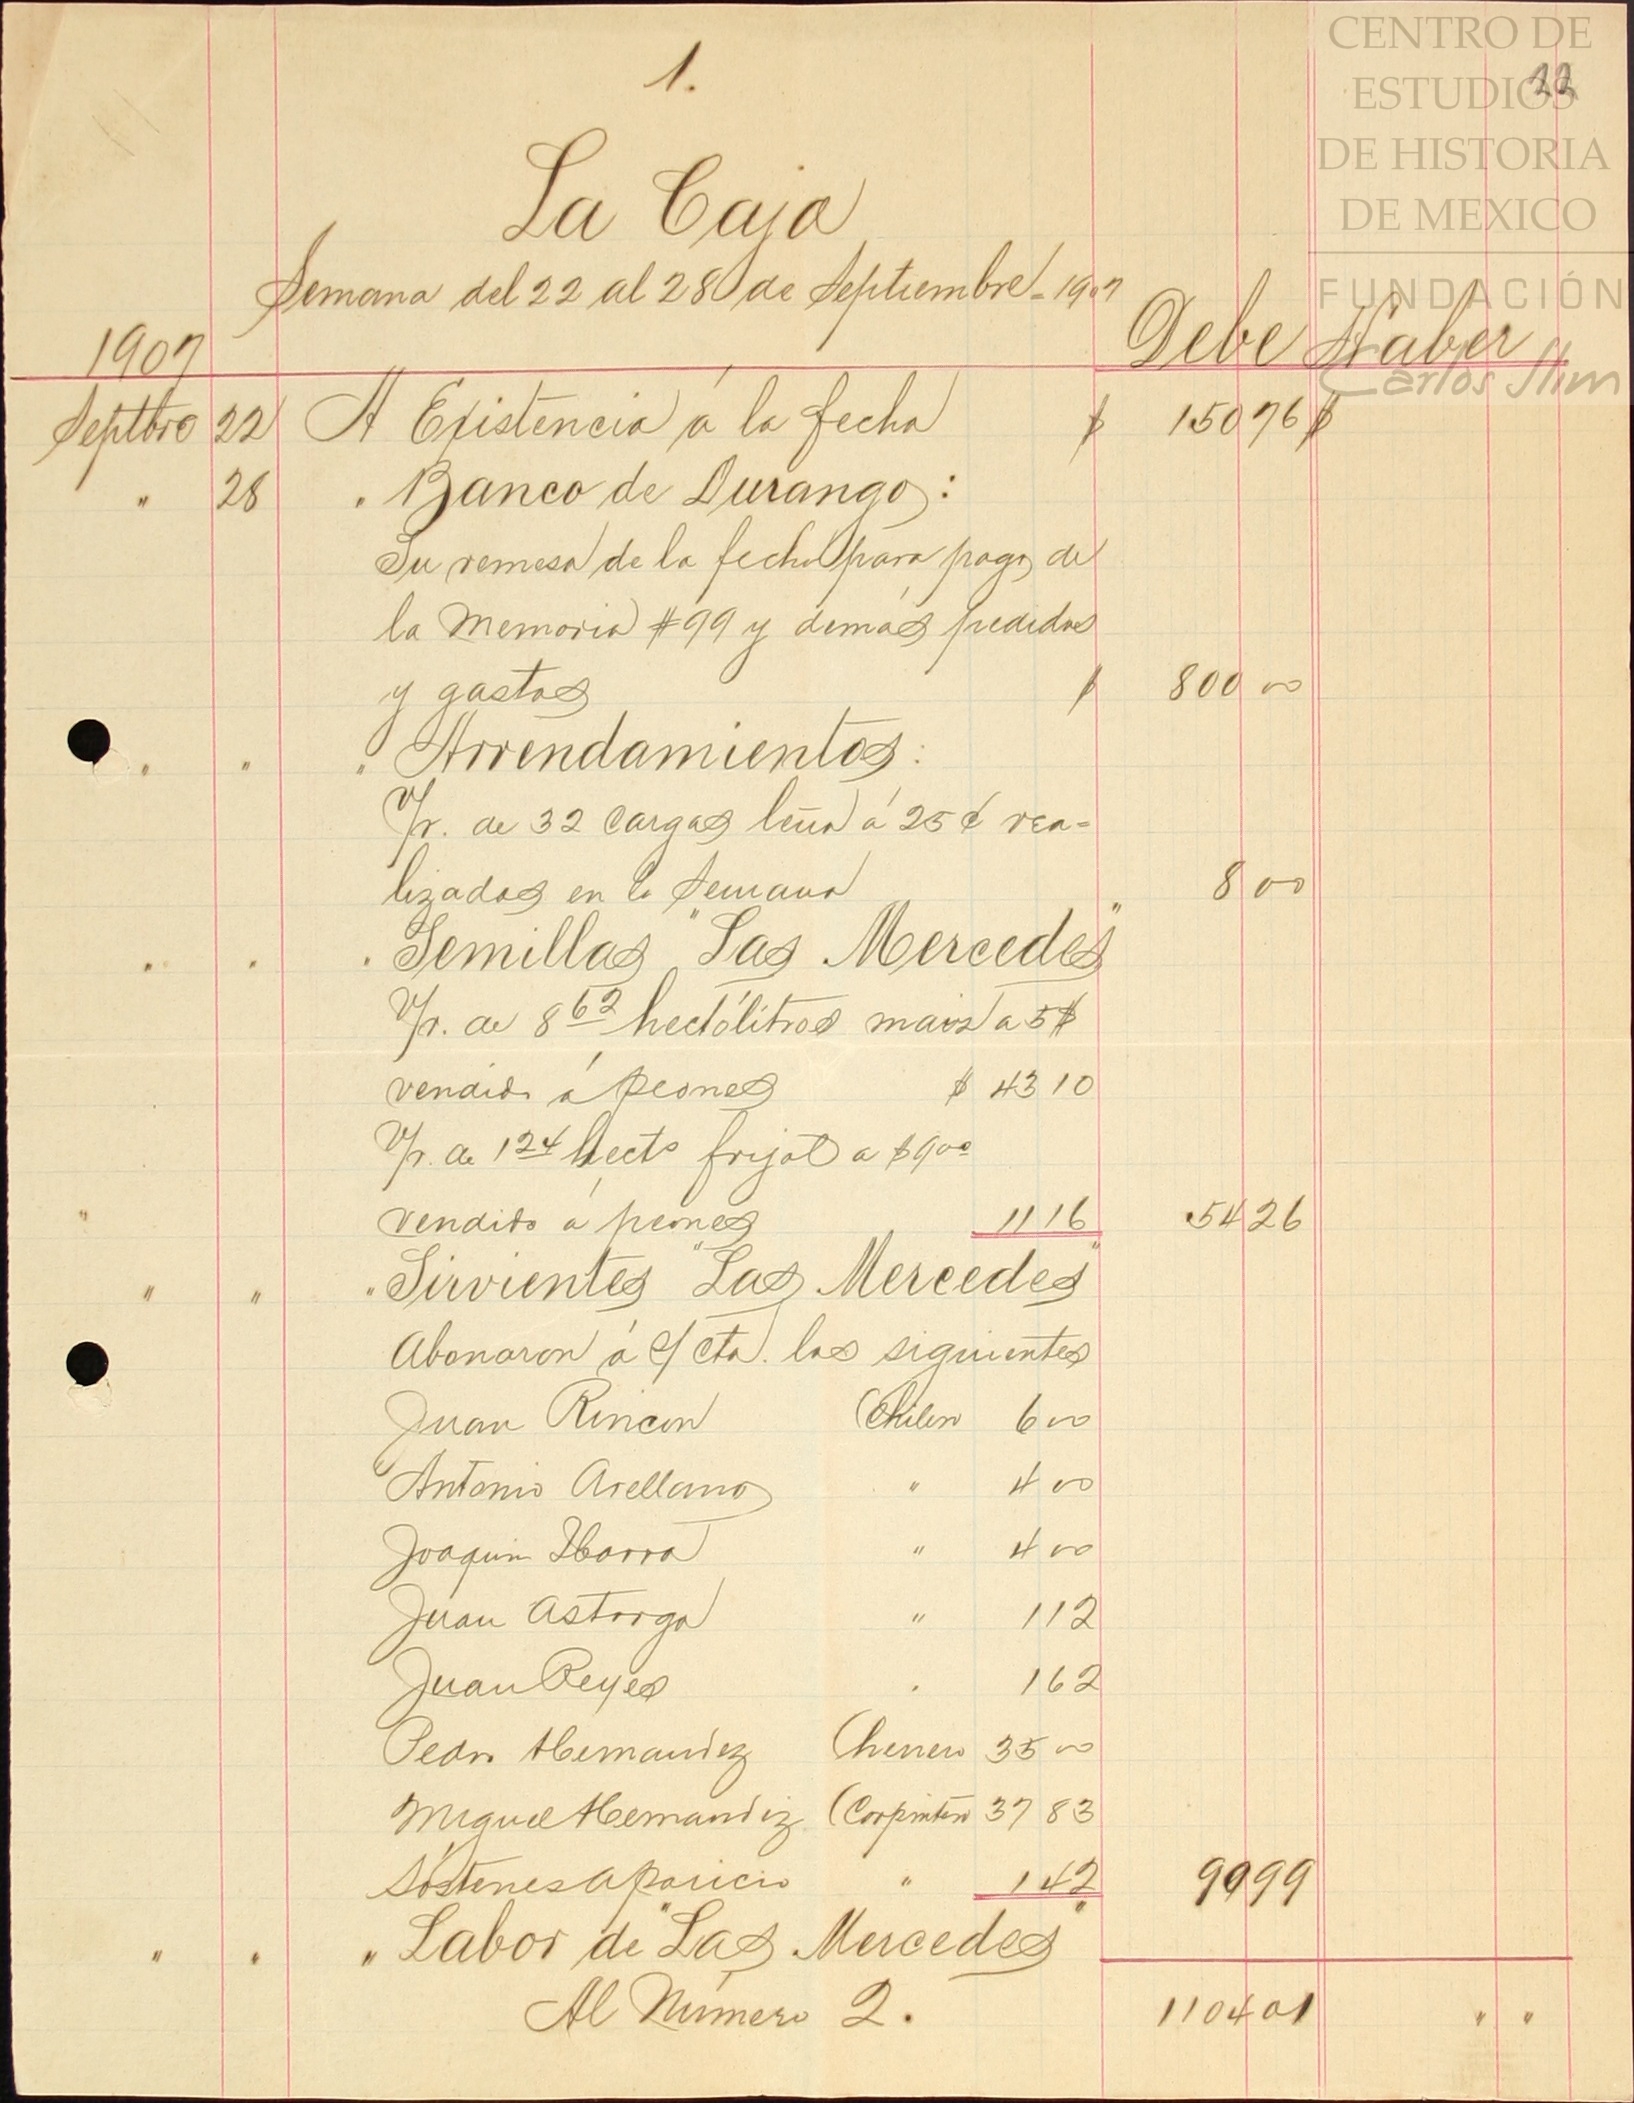 1.
22
CENTRO DE
ESTUDIOS
DE HISTORIA
DE MEXICO
FUNDACIÓN
Carlos Slim
La Caja
Semana del 22 al 28 de Septiembre - 1907
1907 Debe Haber
Septbre 22 A Existencia á la fecha $ 150 76 $
" 28 " Banco de Durango:
Su remesa de la fecha para pago de
la Memoria #99 y demás pedidos
y gastos $ 800 00
" " " Arrendamientos:
V/r. de 32 cargas leña á 25¢ rea-
lizadas en la Semana 8 00
" " " Semillas "Las Mercedes"
V/r. de 8 62 hectólitros maiz a 5$
vendido á peones $ 43 10
V/r. de 1 24 hects frijol a $9 00
" vendido á peones 11 16 54 26
" " " Sirvientes "Las Mercedes"
Abonaron á c/ cta. los siguientes
Juan Rincon (Chilero 6 00
Antonio Arellano " 4 00
Joaquin Ibarra " 4 00
Juan Astorga " 1 12
Juan Reyes " 1 62
Pedro Hernandez (herrero 35 00
Miguel Hernandez (Carpintero 37 83
Sóstenes Aparicio " 1 42 90 99
" " " Labor de "Las Mercedes"
Al Número 2. 1104 01 " "